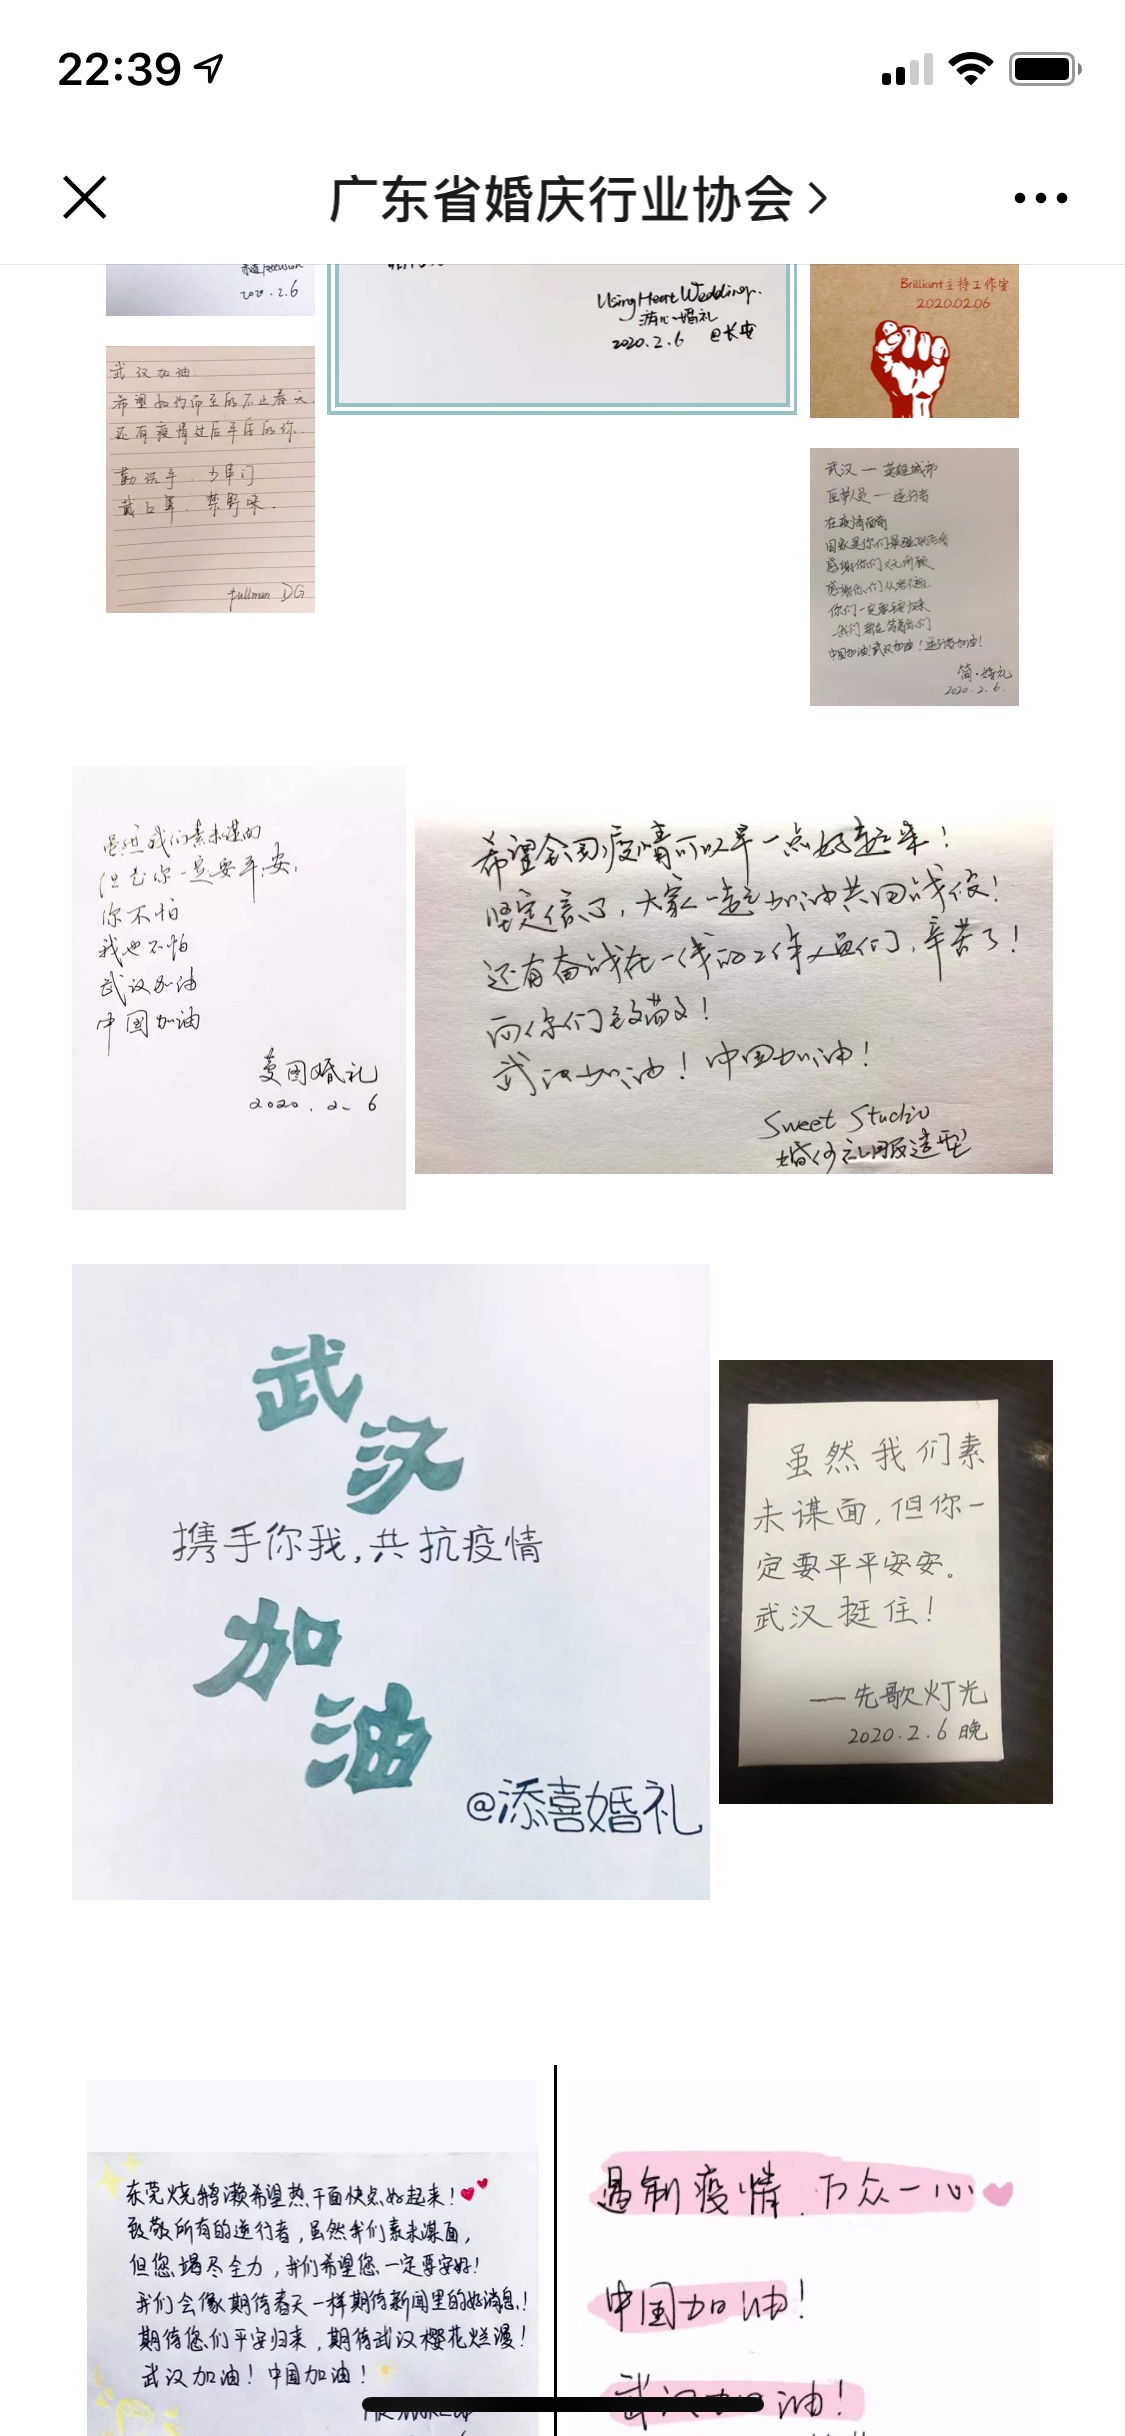 22:39
广东省婚庆行业协会
2020.2.6
Using Heart Wedding
婚礼
2020.2.6 @长安
Brilliant主持工作室
2020.02.06
武汉加油
希望如约而至的不止春天
还有疫情过后平后的你.
勤洗手.少串门
戴口罩.禁野味.
Pullman DG
武汉一英雄城市
医护人员一逆行者
在疫情面前
国家是你们最强
感谢你们
感谢你们
你们一定要平安归来
我们都在等着你们
中国加油!武汉加油!逆行者加油!
简·婚礼
2020.2.6.
虽然我们素未谋面
但是你一定要平安,
你不怕
我也不怕
武汉加油
中国加油
蔓园婚礼
2020.2.6
希望全国疫情可以早一点好起来!
坚定信了,大家一起加油共同战役!
还有奋战在一线的工作人员们,辛苦了!
向你们致敬!
武汉加油!中国加油!
Sweet Studio
婚纱礼服造型
武汉
携手你我,共抗疫情
加油
@添喜婚礼
虽然我们素
未谋面,但你一
定要平平安安。
武汉挺住!
——先歌灯光
2020.2.6晚
东莞烧鹅濑希望热干面快点好起来!
致敬所有的逆行者,虽然我们素未谋面,
但您竭尽全力,我们希望您一定要安好!
我们会像期待春天一样期待新闻里的好消息!
期待您们平安归来,期待武汉樱花烂漫!
武汉加油!中国加油!
遏制疫情 万众一心
中国加油!
武汉加油!